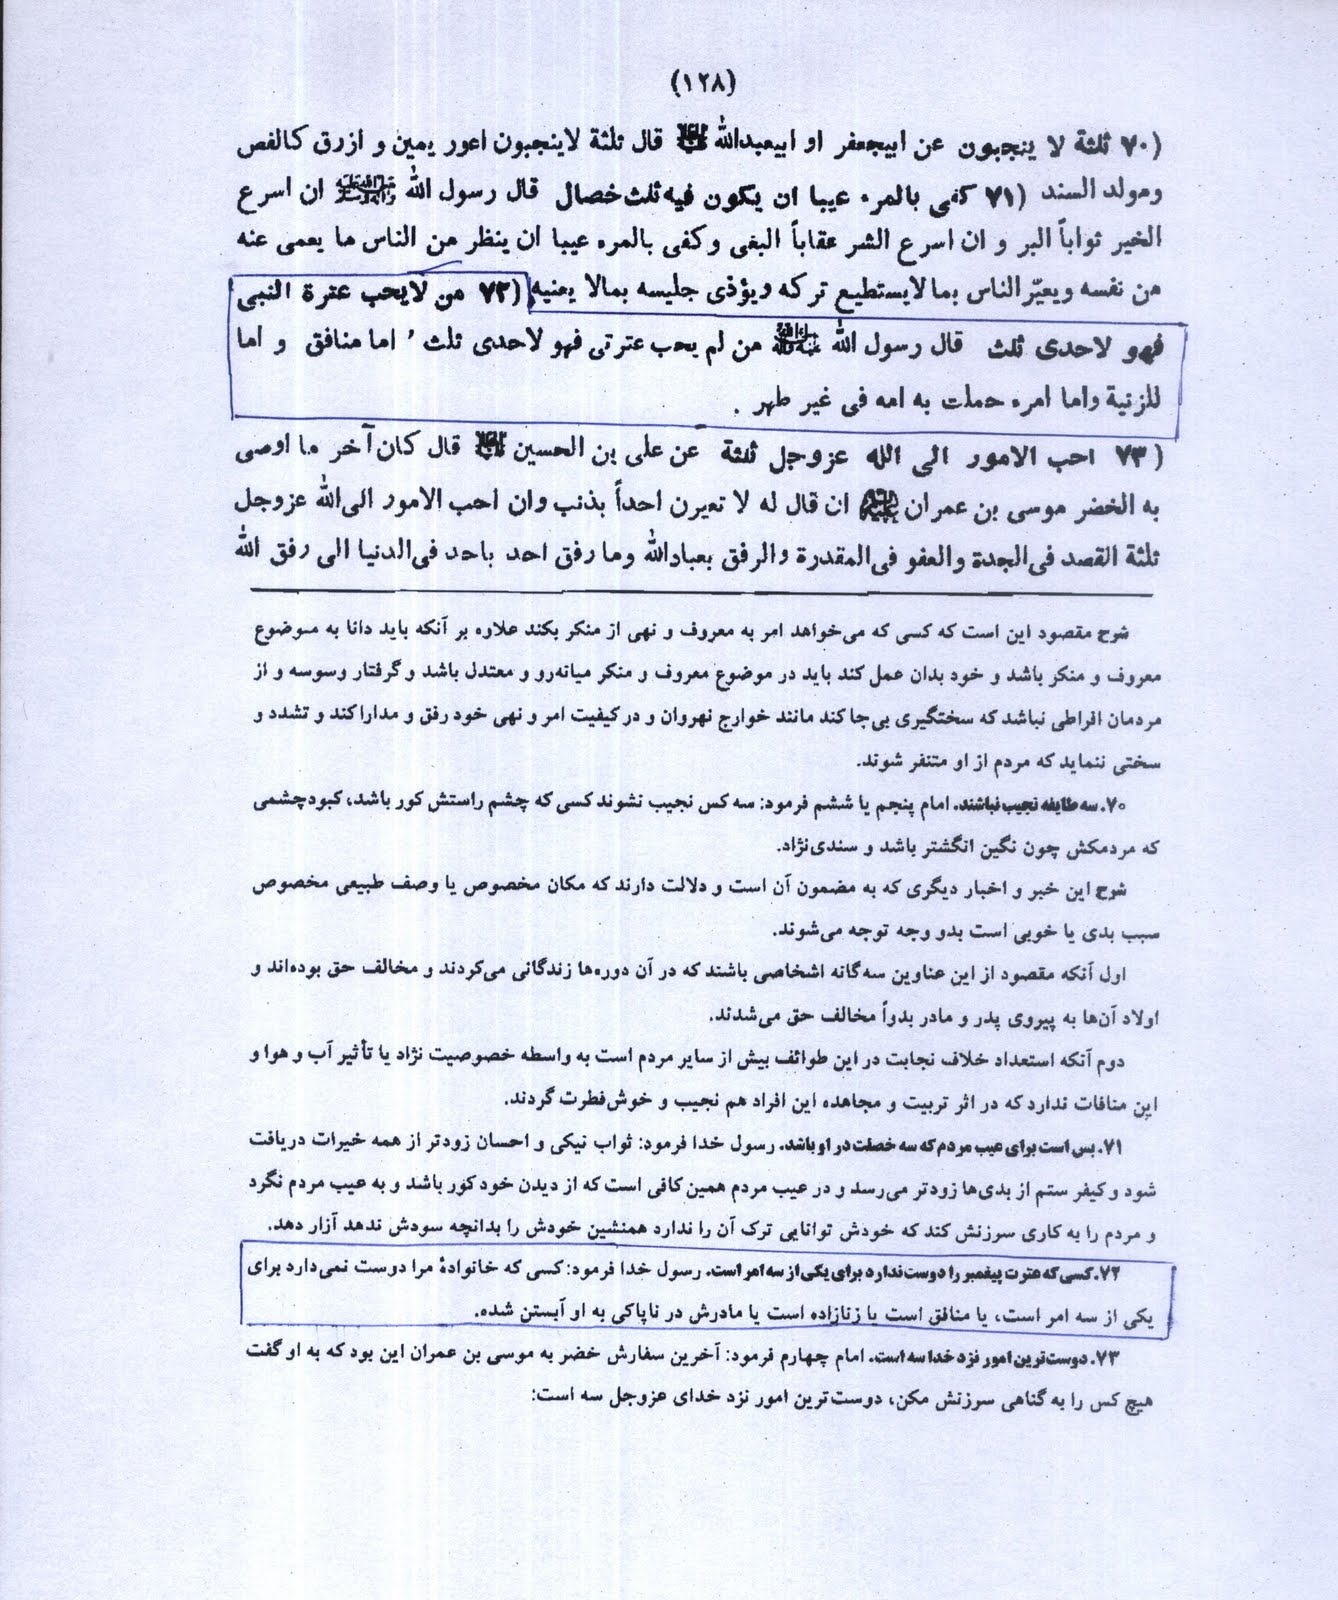 (۱۲۸)
(۷۰ ثلثة لا ینجبون عن ابیجعفر او ابیعبدالله قال ثلثة لاینجبون اعور یمین و ازرق کالفص
ومولد السند (۷۱ کفی بالمرء عیبا ان یکون فیه ثلث خصال قال رسول الله ان اسرع
الخیر ثواباً البر و ان اسرع الشر عقاباً البغی وکفی بالمره عیبا ان ینظر من الناس ما یعمی عنه
من نفسه ویعیّر الناس بما لایستطیع ترکه ویؤذی جلیسه بمالا یعنیه (۷۲ من لایحب عترة النبی
فهو لاحدی ثلث قال رسول الله من لم یحب عترتی فهو لاحدی ثلث ، اما منافق و اما
للزنیة واما امرء حملت به امه فی غیر طهر .
(۷۳ احب الامور الی الله عزوجل ثلثة عن علی بن الحسین قال کان آخر ما اوصی
به الخضر موسی بن عمران ان قال له لا تعیرن احداً بذنب وان احب الامور الی‌الله عزوجل
ثلثة القصد فی‌الجدة والعفو فی‌المقدرة والرفق بعبادالله وما رفق احد باحد فی‌الدنیا الی رفق الله
شرح مقصود این است که کسی که می‌خواهد امر به معروف و نهی از منکر بکند علاوه بر آنکه باید دانا به موضوع
معروف و منکر باشد و خود بدان عمل کند باید در موضوع معروف و منکر میانه‌رو و معتدل باشد و گرفتار وسوسه و از
مردمان افراطی نباشد که سختگیری بی‌جا کند مانند خوارج نهروان و در کیفیت امر و نهی خود رفق و مدارا کند و تشدد و
سختی ننماید که مردم از او متنفر شوند.
۷۰. سه طایفه نجیب نباشند. امام پنجم یا ششم فرمود: سه کس نجیب نشوند کسی که چشم راستش کور باشد، کبودچشمی
که مردمکش چون نگین انگشتر باشد و سندی‌نژاد.
شرح این خبر و اخبار دیگری که به مضمون آن است و دلالت دارند که مکان مخصوص یا وصف طبیعی مخصوص
سبب بدی یا خوبی است بدو وجه توجه می‌شوند.
اول آنکه مقصود از این عناوین سه‌گانه اشخاصی باشند که در آن دوره‌ها زندگانی می‌کردند و مخالف حق بوده‌اند و
اولاد آن‌ها به پیروی پدر و مادر بدواً مخالف حق می‌شدند.
دوم آنکه استعداد خلاف نجابت در این طوائف بیش از سایر مردم است به واسطه خصوصیت نژاد یا تأثیر آب و هوا و
این منافات ندارد که در اثر تربیت و مجاهده این افراد هم نجیب و خوش‌فطرت گردند.
۷۱. بس است برای عیب مردم که سه خصلت در او باشد. رسول خدا فرمود: ثواب نیکی و احسان زودتر از همه خیرات دریافت
شود و کیفر ستم از بدی‌ها زودتر می‌رسد و در عیب مردم همین کافی است که از دیدن خود کور باشد و به عیب مردم نگرد
و مردم را به کاری سرزنش کند که خودش توانایی ترک آن را ندارد همنشین خودش را بدانچه سودش ندهد آزار دهد.
۷۲. کسی که عترت پیغمبر را دوست ندارد برای یکی از سه امر است. رسول خدا فرمود: کسی که خانوادهٔ مرا دوست نمی‌دارد برای
یکی از سه امر است، یا منافق است یا زنازاده است یا مادرش در ناپاکی به او آبستن شده.
۷۳. دوست‌ترین امور نزد خدا سه است. امام چهارم فرمود: آخرین سفارش خضر به موسی بن عمران این بود که به او گفت
هیچ کس را به گناهی سرزنش مکن، دوست‌ترین امور نزد خدای عزوجل سه است: